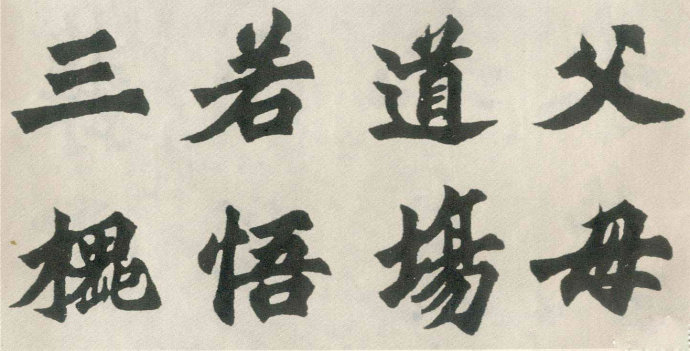 父母
道場
若悟
三槐